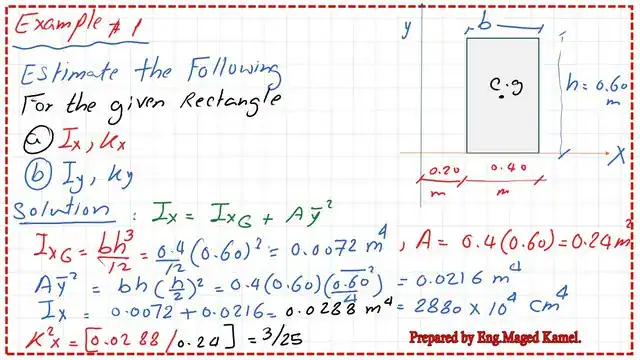 Example #1
Estimate the Following
For the given Rectangle
ⓐ Ix, Kx
ⓑ Iy, Ky
Solution : Ix = IxG + Aȳ²
IxG = bh³/12 = 0.4/12 (0.60)² = 0.0072 m⁴, A = 0.4(0.60) = 0.24 m²
Aȳ² = bh(h/2)² = 0.4(0.60)(0.60²/4) = 0.0216 m⁴
Ix = 0.0072 + 0.0216 = 0.0288 m⁴ = 2880 × 10⁴ cm⁴
K²x = [0.0288/0.24] = 3/25
y
b
c.g
h = 0.60
m
X
0.20
m
0.40
m
Prepared by Eng.Maged Kamel.